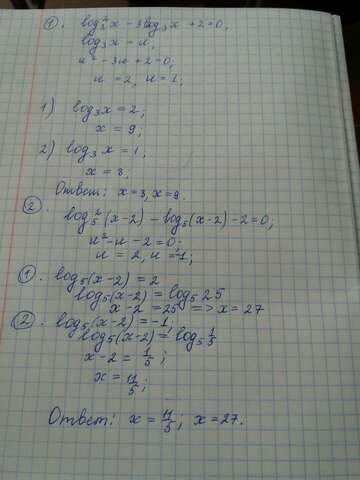 ①. log₃²x - 3log₃x + 2 = 0;
log₃x = u;
u² - 3u + 2 = 0;
u = 2, u = 1;
1) log₃x = 2;
x = 9;
2) log₃x = 1;
x = 3;
Ответ: x = 3, x = 9.
②.
log₅²(x-2) - log₅(x-2) - 2 = 0;
u² - u - 2 = 0;
u = 2, u = -1;
①. log₅(x-2) = 2
log₅(x-2) = log₅25
x - 2 = 25 => x = 27
②. log₅(x-2) = -1;
log₅(x-2) = log₅ 1/5
x - 2 = 1/5;
x = 11/5;
Ответ: x = 11/5; x = 27.